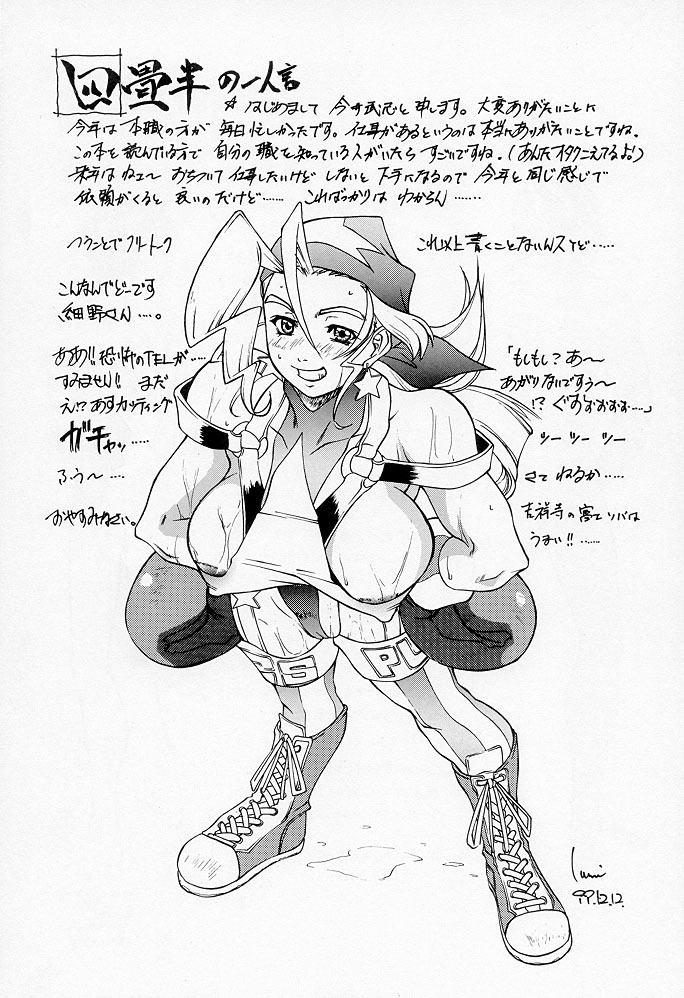 四畳半の一人言
☆はじめまして 今井武志と申します。大変ありがたいことに
今年は本職の方が毎日忙しかったです。仕事があるというのは本当にありがたいことですね。
この本を読んでいる方で自分の職を知っている人がいたらすごいですね。(あんたオタクこえてるよ!)
来年はねェ〜おちついて仕事したいけどしないと下手になるので今年と同じ感じで
依頼がくると良いのだけど……こればっかりはわからん……
つうことでフリートーク
これ以上書くことないんスけど……
こんなんでどーです
細野さん…。
ああ!!恐怖のTELが……
すみません!! まだ
え!?あすカッティング
ガチャッ……
ふう〜……
おやすみなさい。
「もしもし?あ〜
あがりないですぅ〜
!?ぐすおおおお…」
ツーツーツー
さてねるか……
吉祥寺の ソバは
うまい!!……
PU
99.12.12.